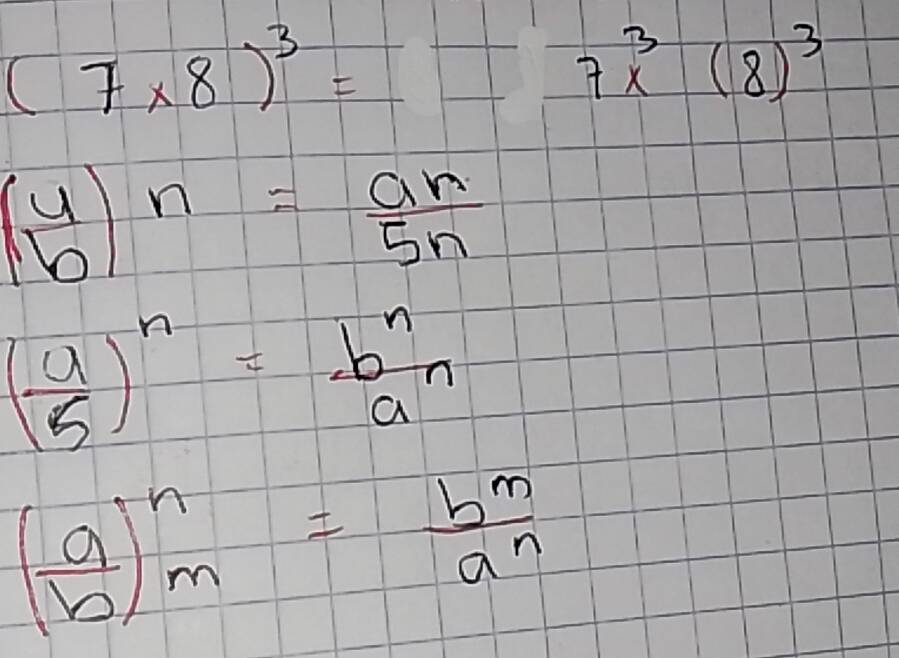 (7 × 8)³ = 7³ × (8)³
(4/b) n = an/5n
(a/5)ⁿ = bⁿ/aⁿ
(a/b)ⁿₘ = bᵐ/aⁿ